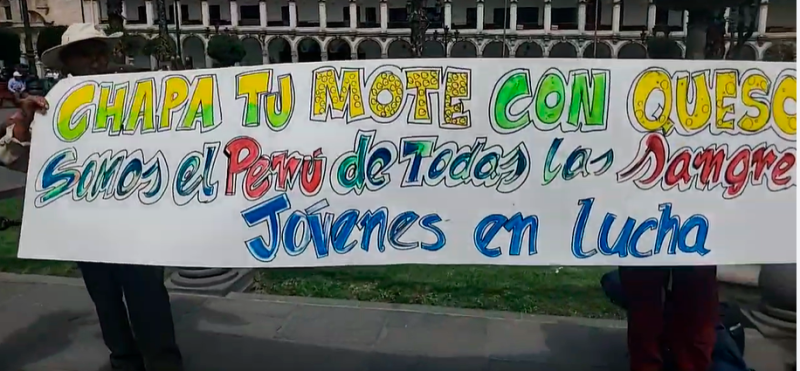 CHAPA TU MOTE CON QUESO
Somos el Perú de Todas las Sangre
Jóvenes en lucha